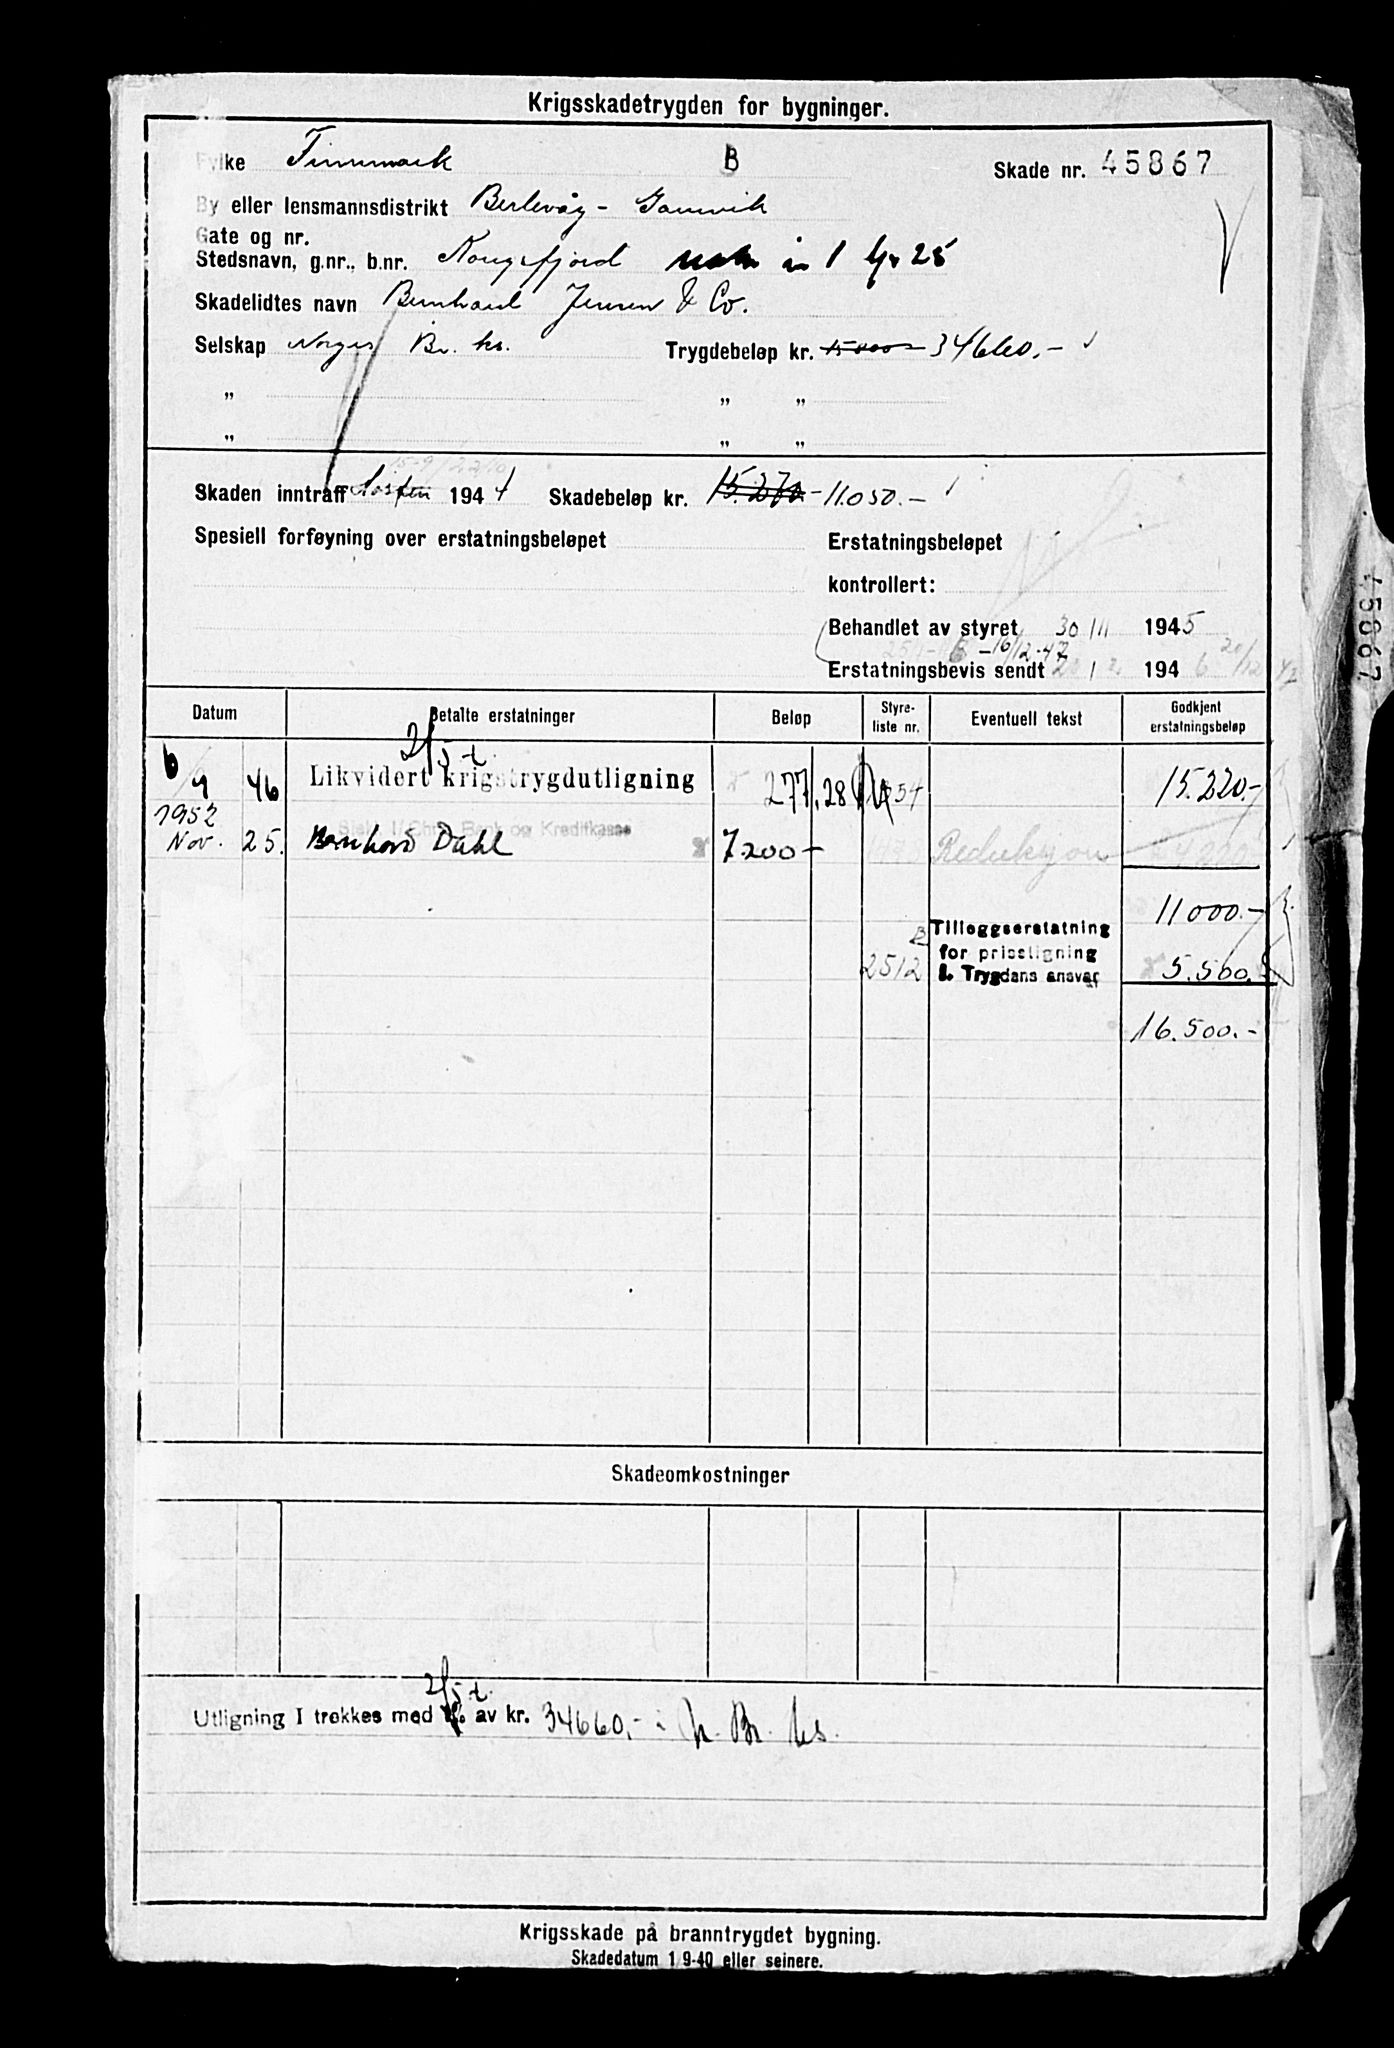 Krigsskadetrygden for bygninger.
Fylke Finnmark B Skade nr. 45867
By eller lensmannsdistrikt Berlevåg - Gamvik
Gate og nr.
Stedsnavn, g.nr., b.nr. Kongsfjord 1 25
Skadelidtes navn Bernhard Jensen & Co.
Selskap Norges Br. ks. Trygdebeløp kr. 15000 34660.-
„ „ „
„ „ „
15-9/22/10
Skaden inntraff høsten 1944 Skadebeløp kr. 15.270.- 11.050.-
Spesiell forføyning over erstatningsbeløpet Erstatningsbeløpet
kontrollert:
Behandlet av styret 30/11 1945
16/12-47
Erstatningsbevis sendt 1946 20/12 47
Datum Betalte erstatninger Beløp Styre-liste nr. Eventuell tekst Godkjent erstatningsbeløp
2/5 t.
6/9 46 Likvidert krigstrygdutligning 277,28 54 15.220.-
1952
Nov. 25. Bernhard Dahl 7200- Reduksjon 4220
11000.-
2512 Tilleggserstatning for prisstigning 1. Trygdens ansvar 5.500.-
16.500.-
Skadeomkostninger
2/5 t.
Utligning I trekkes med ‰ av kr. 34660.- i N. Br. ks.
Krigsskade på branntrygdet bygning.
Skadedatum 1/9-40 eller seinere.
45867